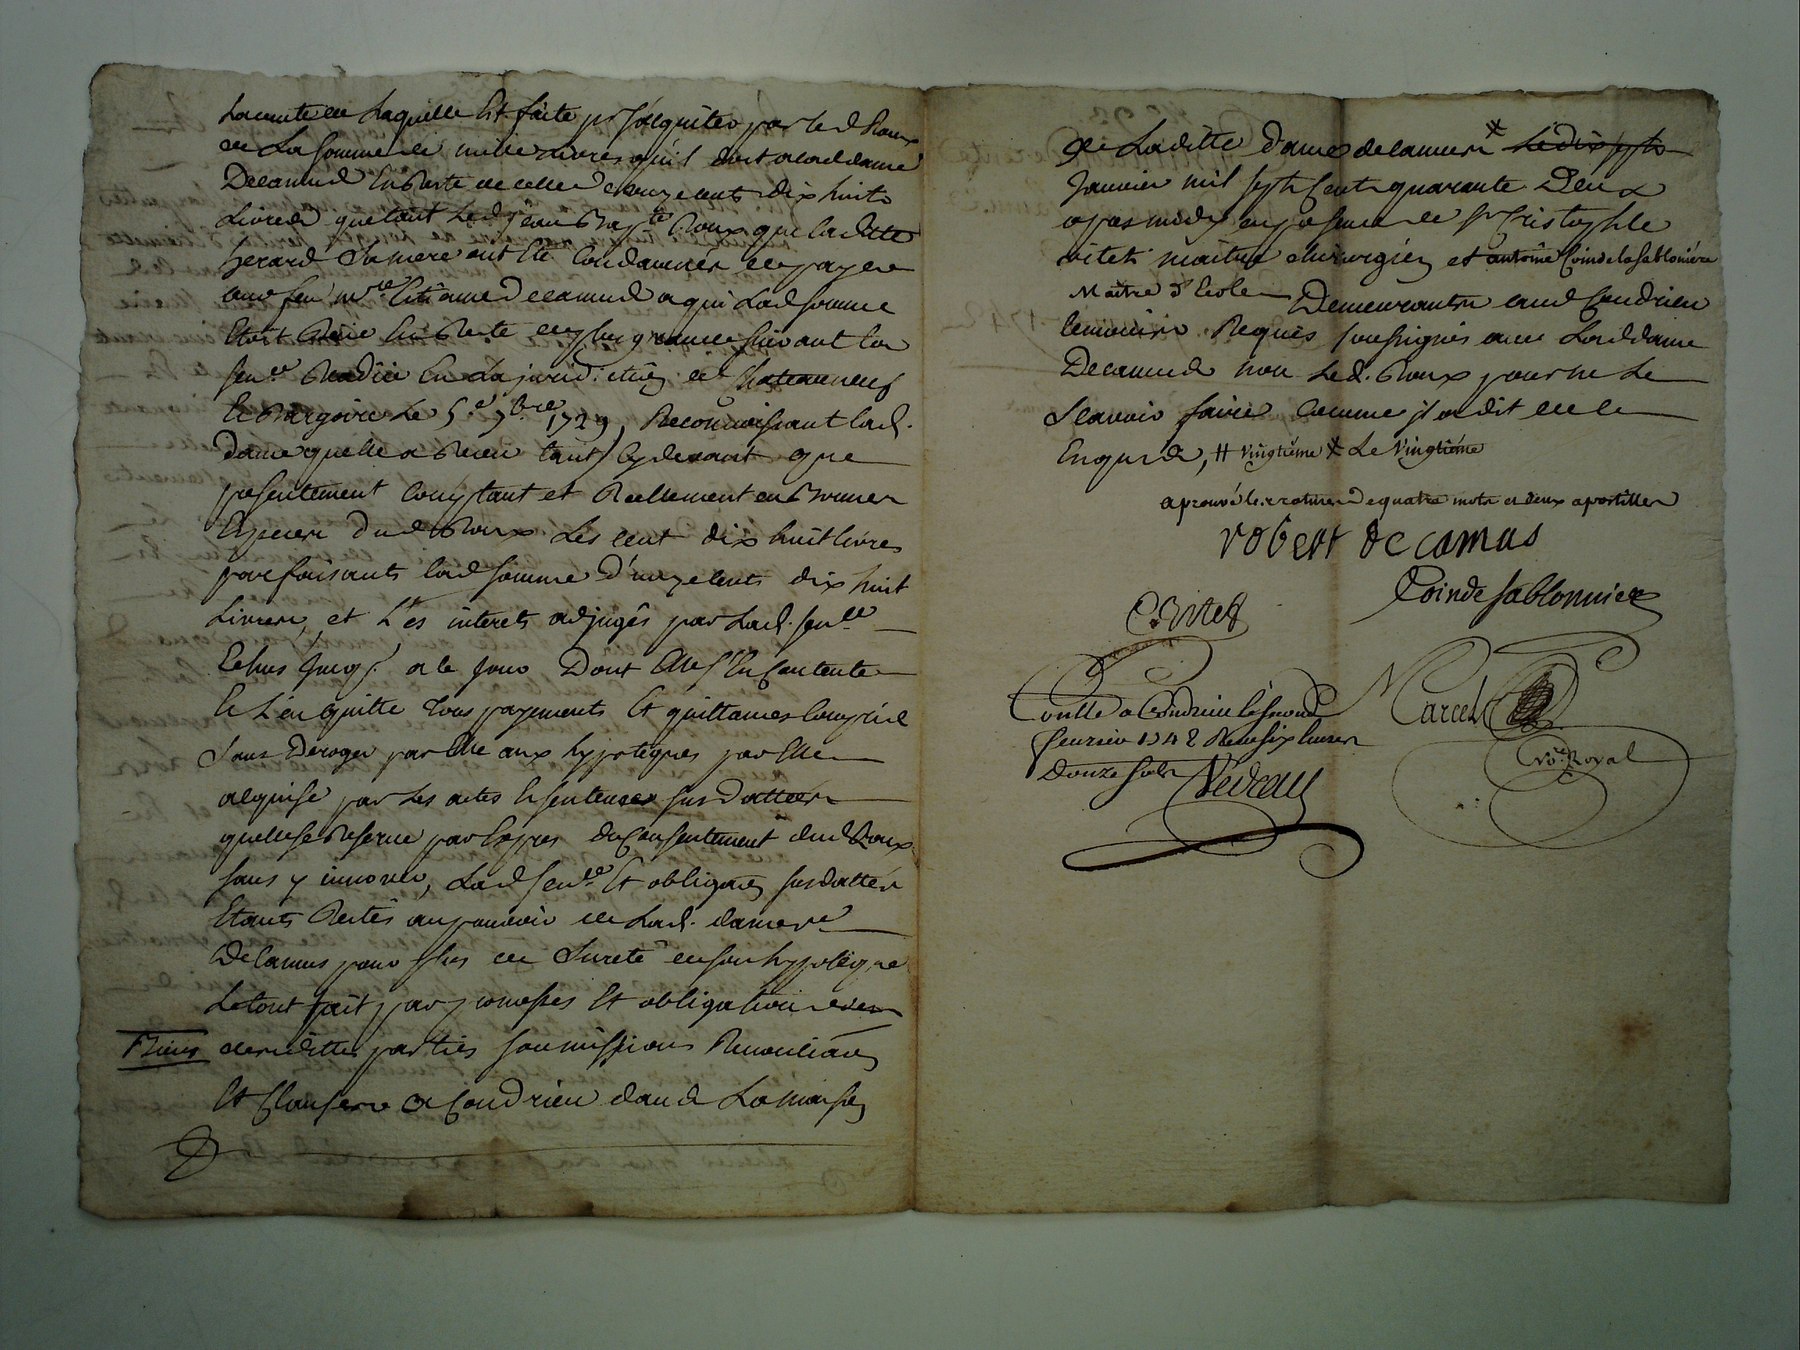 La vente de laquelle Est faite pr s'acquiter par led Roux
de La Somme de mille livres qu'il doit a lad dame
Decamus En Reste de celle d'onze cents dix huit
Livres que tant Led Jean Bapte Roux que laditte
Gerard Sa mere ont Eté Condamnés de payer
aud feu mre Etienne Decamus a qui Lad somme
Etoit Reste
senee Rendüe En La jurid.ction de Chateauneuf
Et Dargoire Le 5e 7bre 1729, Reconnoissant lad.
Dame quelle a Receu tant Cydevant que
presentement Comptant et Reellement en Bonnes
Especes dud Roux Les cent dix huit livres
parfaisants lad somme d'onze cents dix huit
Livres, et Les interets adjugés par Lad. senee
Echus Jusq. a le Jour Dont Elle s'En Contente
Et L'en quitte tous payements Et quittances Compris
Sans Deroger par Elle aux hypoteques par Elle
acquise par les actes Et sentences susdattées
quelle se Reserve par Expres du Consentement dud Roux
sans y innover, Lad senee Et obligaon susdattées
Etants Restés au pouvoir de Lad. dame
De Camus pour plus de Sureté de son hypoteque
Le tout fait par promesses Et obligation
Biens desdittes parties soumissions Renonciaons
Et Clauses a Condrieu dans La maison
De Laditte dame decamus # Le dix sept
Janvier mil sept Cents quarante Deux
apres midy en presence de Sr Cristophle
vitet maitre chirurgien et antoine Coinde la Sablonière
Maitre d'Ecole Demeurants aud Condrieu
temoins Requis soussignés avec Lad dame
Decamus non Led. Roux pour ne Le
Scavoir faire comme il a dit de ce
Enquis, # vingtiéme # Le Vingtiéme
aprouvé les ratures de quatre mots et deux apostilles
robert de camus
Coinde Sablonnier
Vitet
Marcel
Nore Royal
Conllé a Condrieu le second
feuvrier 1742 Receu six livres
Douze sols